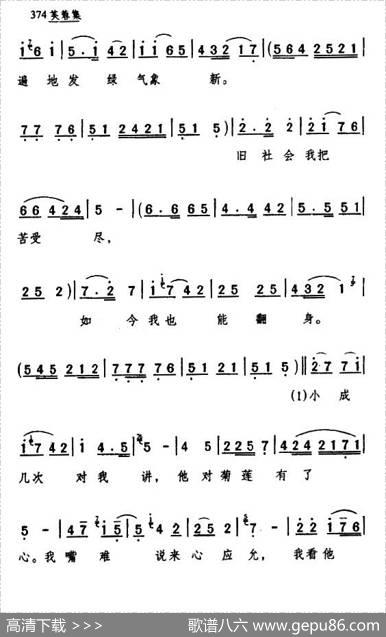 374 芙蓉集
i 6 i | 5 . i 42 | i i 65 | 432 17 | (564 2521
遍 地 发 绿 气象 新。
77 76 | 51 2421 | 51 5) | 2 . 2 2 | 2i 76
旧 社 会 我把
66 424 | 5 - | (6 . 6 65 | 4 . 4 42 | 5 . 5 51
苦受 尽,
25 2) | 7 . 2 7 | i7 42 | 25 25 | 432 1
如 今我也 能 翻 身。
(545 212 | 777 76 | 51 21 | 51 5) || 27 7i
(1)小 成
i742 | i 4 . 5 | 5 - | 4 5 | 2257 | 424 2171
几次 对我 讲, 他 对菊莲 有了
5 - | 47 i5 | 5 42 | 25 | 7 - | 22 i76
心。我 嘴 难 说来 心 应允, 我看他
高清下载 >>> 歌谱八六 www.gepu86.com